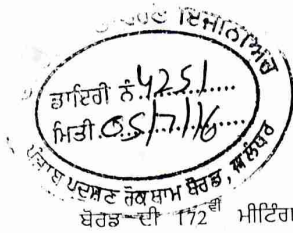 ਇੰਜੀਨੀਅਰ
ਡਾਇਰੀ ਨੰ. 4251
ਮਿਤੀ. 05/7/16
ਪੰਜਾਬ ਪ੍ਰਦੂਸ਼ਣ ਰੋਕਥਾਮ ਬੋਰਡ, ਜਲੰਧਰ
ਬੋਰਡ ਦੀ 172ਵੀਂ ਮੀਟਿੰਗ